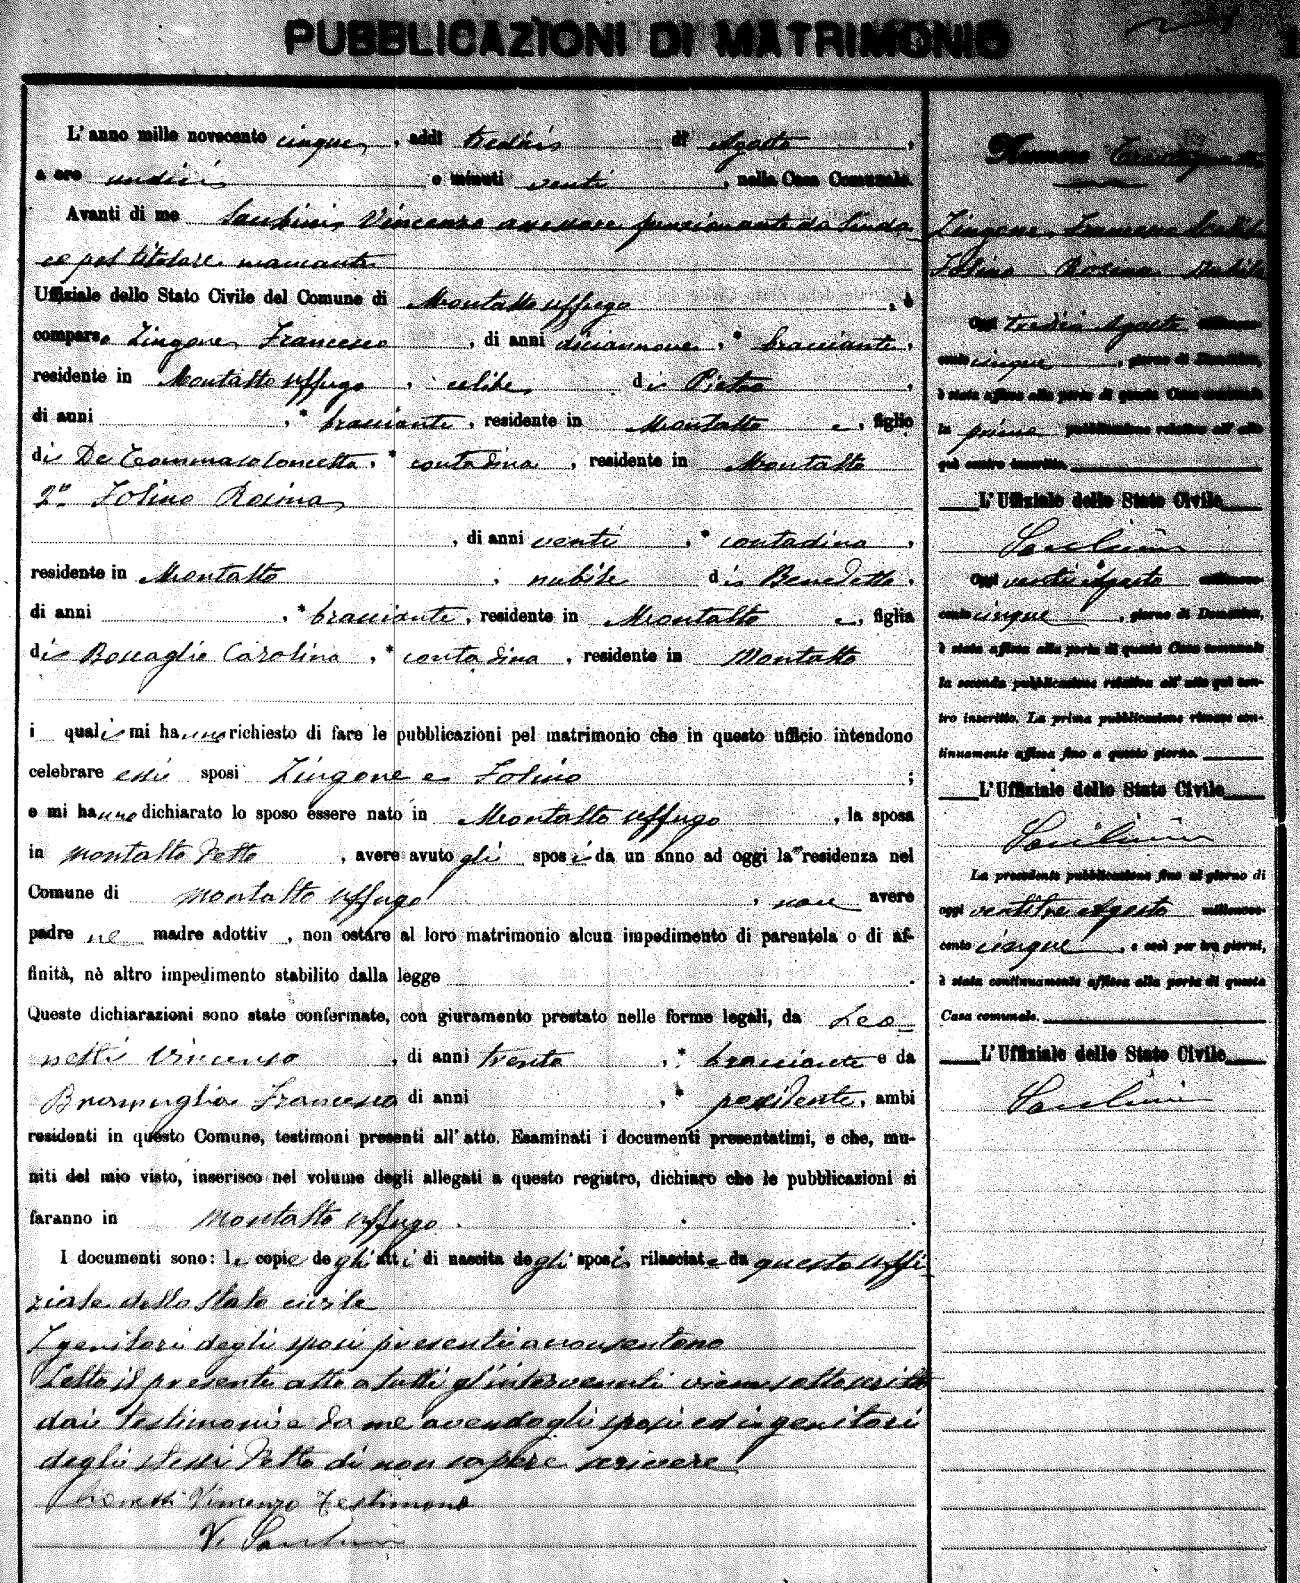 PUBBLICAZIONI DI MATRIMONIO
L'anno mille novecento cinque, addì tredici di Agosto,
a ore undici e minuti venti, nella Casa Comunale.
Avanti di me Vincenzo assessore funzionante da Sinda-
co pel titolare mancante
Uffiziale dello Stato Civile del Comune di Montalto Uffugo, è
comparso Zingone Francesco, di anni diciannove, * bracciante,
residente in Montalto Uffugo, celibe di Pietro,
di anni , * bracciante, residente in Montalto e, figlio
di De Tommaso Concetta, * contadina, residente in Montalto
2° Folino Rosina
, di anni venti, * contadina,
residente in Montalto, nubile di Benedetto,
di anni , * bracciante, residente in Montalto e, figlia
di Boscaglie Carolina, * contadina, residente in Montalto
i quali mi hanno richiesto di fare le pubblicazioni pel matrimonio che in questo ufficio intendono
celebrare essi sposi Zingone e Folino ;
e mi hanno dichiarato lo sposo essere nato in Montalto Uffugo, la sposa
in Montalto detto, avere avuto gli sposi da un anno ad oggi la residenza nel
Comune di Montalto Uffugo, non avere
padre nè madre adottiv , non ostare al loro matrimonio alcun impedimento di parentela o di af-
finità, nè altro impedimento stabilito dalla legge .
Queste dichiarazioni sono state confermate, con giuramento prestato nelle forme legali, da Leo-
netti Vincenzo, di anni trenta, * bracciante e da
Francesco di anni , * possidente, ambi
residenti in questo Comune, testimoni presenti all'atto. Esaminati i documenti presentatimi, e che, mu-
niti del mio visto, inserisco nel volume degli allegati a questo registro, dichiaro che le pubblicazioni si
faranno in Montalto Uffugo.
I documenti sono: le copie degli atti di nascita degli sposi rilasciate da questo Uffi-
ziale dello Stato civile
I genitori degli sposi presenti acconsentono
Letto il presente atto a tutti gl'intervenuti viene sottoscritto
dai testimoni e da me avendo gli sposi ed i genitori
degli stessi detto di non sapere scrivere
Leonetti Vincenzo Testimone
V.
Numero
Zingone Francesco celibe
Folino Rosina nubile
Oggi tredici Agosto millenove-
cento cinque, giorno di Domenica,
è stata affissa alla porta di questa Casa comunale
la prima pubblicazione relativa all'atto
quì contro inscritto.
L'Uffiziale dello Stato Civile
Oggi venti Agosto millenove-
cento cinque, giorno di Domenica,
è stata affissa alla porta di questa Casa comunale
la seconda pubblicazione relativa all'atto quì con-
tro inscritto. La prima pubblicazione rimase con-
tinuamente affissa fino a questo giorno.
L'Uffiziale dello Stato Civile
La precedente pubblicazione fino al giorno di
oggi ventitre Agosto millenove-
cento cinque, e così per tre giorni,
è stata continuamente affissa alla porta di questa
Casa comunale.
L'Uffiziale dello Stato Civile